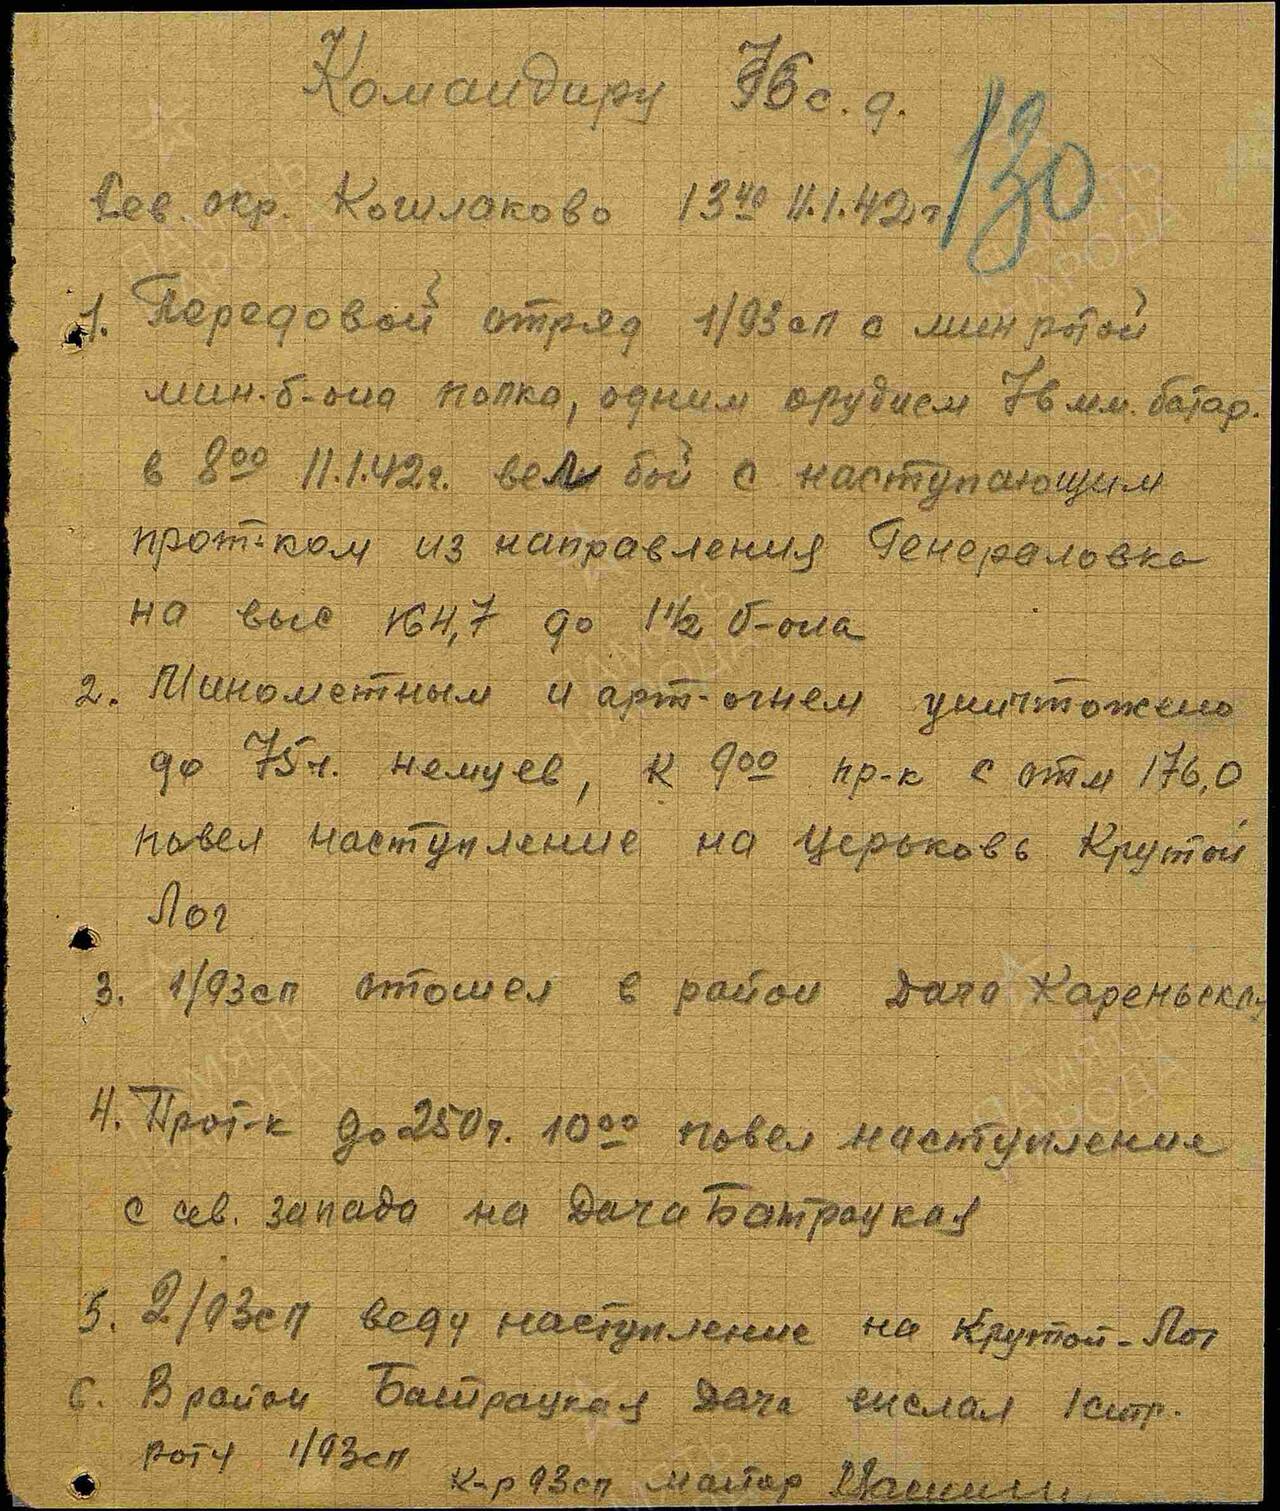 Командиру 76 с.д.
130
Сев. окр. Кошлаково 13⁴⁰ 11.1.42 г.
1. Передовой отряд 1/93 сп с мин ротой
мин. б-она полка, одним орудием 76 мм. батар.
в 8⁰⁰ 11.1.42г. вел бой с наступающим
прот-ком из направления Генераловка
на выс 164,7 до 1 1/2 б-она
2. Минометным и арт-огнем уничтожено
до 75 ч. немцев, к 9⁰⁰ пр-к с отм 176,0
повел наступление на церьковь Крутой
Лог
3. 1/93 сп отошел в район Дача
4. Прот-к до 250 ч. 10⁰⁰ повел наступление
с сев. запада на Дача Батрацкая
5. 2/93 сп веду наступление на Крутой-Лог
6. В район Батрацкая Дача выслал 1 стр.
роту 1/93 сп
К-р 93 сп майор
ПАМЯТЬ НАРОДА